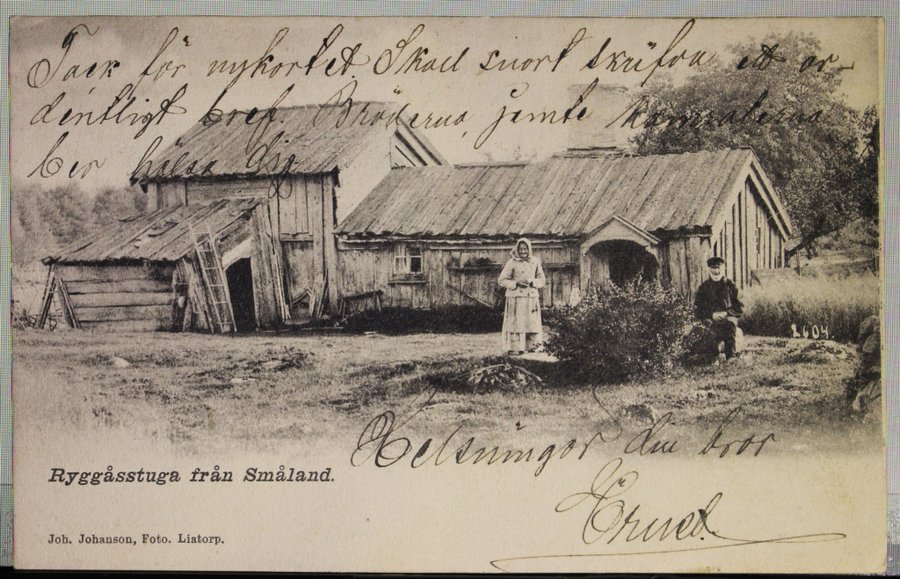 Tack för vykortet Skall snart skrifva ett or-
dentligt bref. Bröderna jemte kamraterna
ber hälsa dig
2604
Helsningar din bror
Ernst.
Ryggåsstuga från Småland.
Joh. Johanson, Foto. Liatorp.